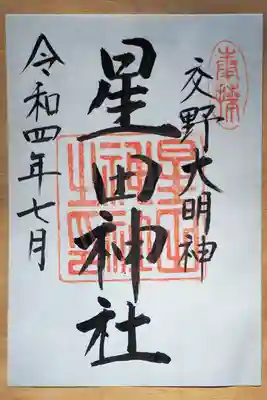 奉拝
交野大明神
星田神社
令和四年七月
星田神社之印